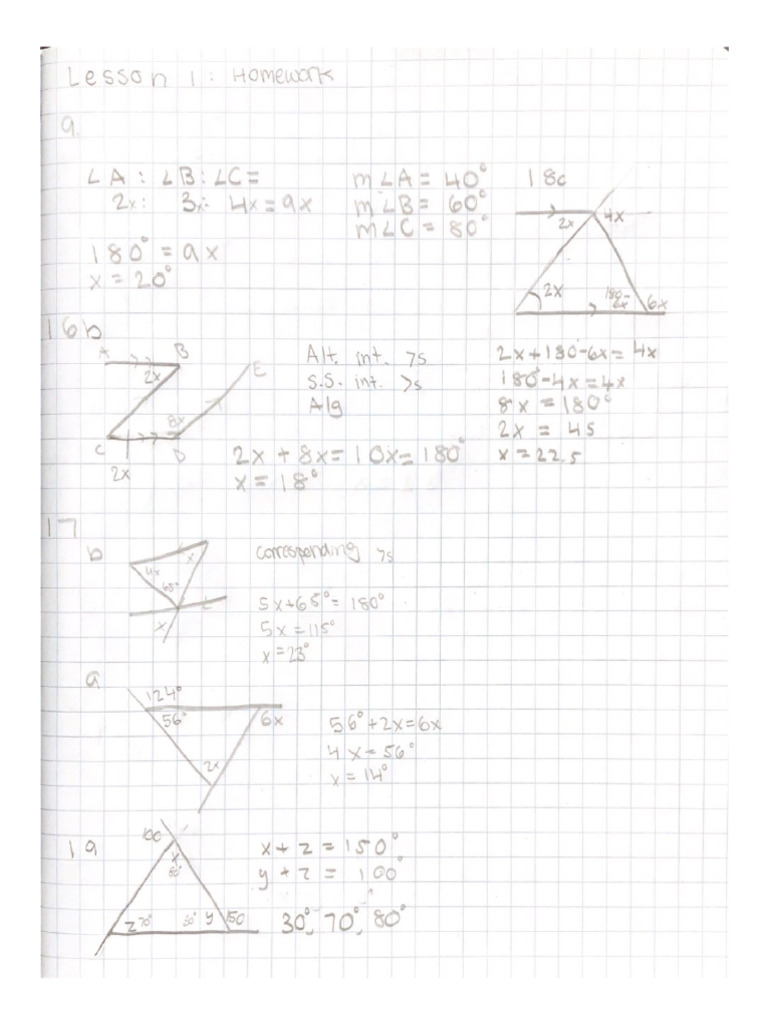 Lesson 1: Homework
9.
∠A : ∠B : ∠C =
2x: 3x: 4x = 9x
180° = 9x
x = 20°
m∠A = 40°
m∠B = 60°
m∠C = 80°
18c
2x 4x
2x 6x
2x+180-6x= 4x
180-4x=4x
8x = 180°
2x = 45
x = 22.5
16b
A B E
2x
8x
C D
2x
Alt. int. >s
S.S. int. >s
Alg
2x + 8x = 10x = 180°
x = 18°
17
b
4x x
65°
x
corresponding >s
5x+65° = 180°
5x = 115°
x = 23°
a
124°
56° 6x
2x
56°+2x=6x
4x = 56°
x = 14°
19
100
x
80°
z 70° 30° y 150
x + z = 150°
y + z = 100°
30°, 70°, 80°